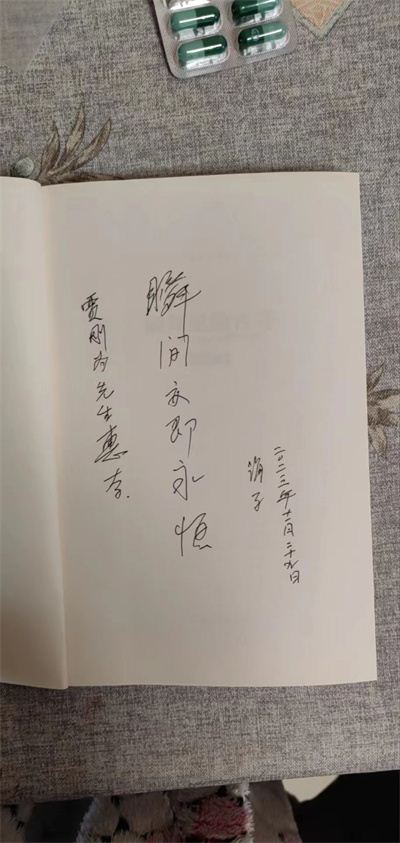 贾刚为先生惠存.
瞬间亦即永恒
子
二〇二三年十二月二十九日